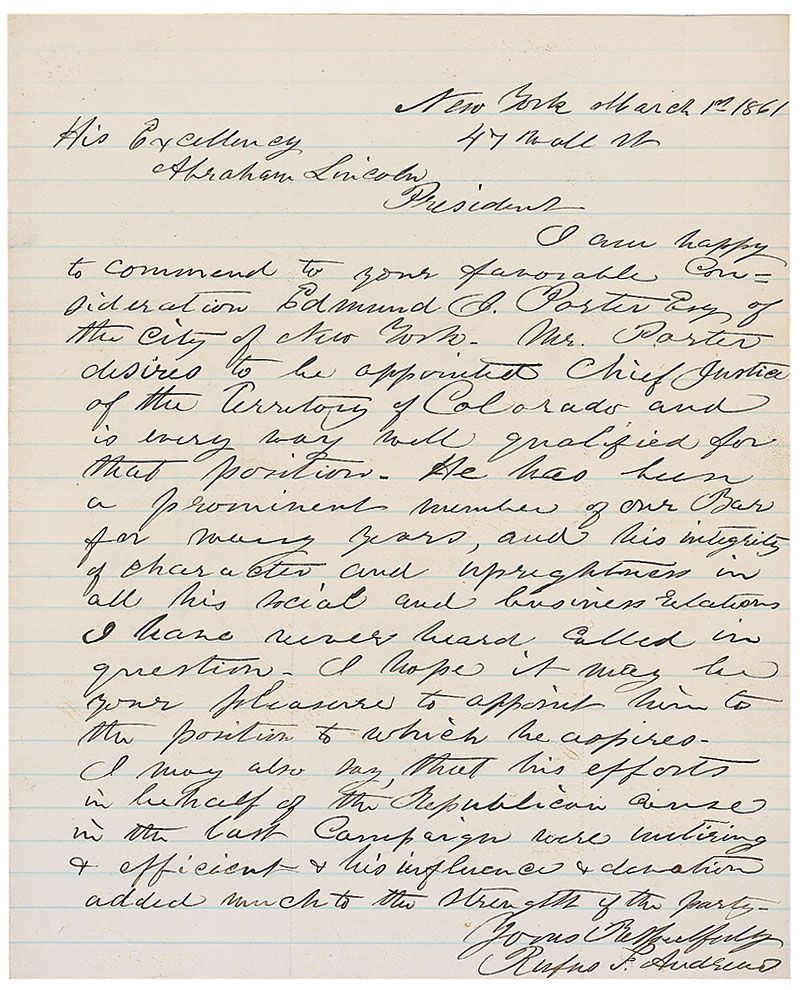 New York March 1st 1861
His Excellency 47 Wall St
Abraham Lincoln
President
I am happy
to commend to your favorable Con=
sideration Edmund J. Porter Esq of
the City of New York. Mr. Porter
desires to be appointed Chief Justice
of the Territory of Colorado and
is every way well qualified for
that position. He has been
a prominent member of our Bar
for many years, and his integrity
of character and uprightness in
all his social and business relations
I have never heard called in
question. I hope it may be
your pleasure to appoint him to
the position to which he aspires.
I may also say, that his efforts
in behalf of the Republican cause
in the last Campaign were untiring
& efficient & his influence & devotion
added much to the strength of the party.
Yours Respectfully
Rufus F. Andrews